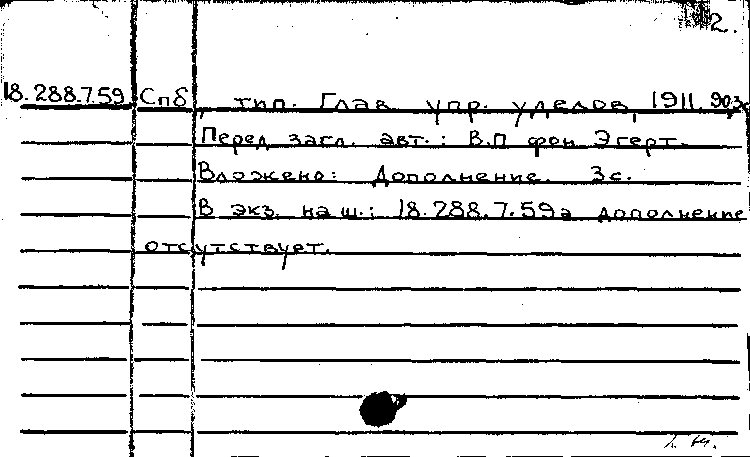 2.
18.288.7.59 Спб, тип. Глав. упр. уделов, 1911. 90,3с
Перед загл. авт.: В.П фон Эгерт.
Вложено: Дополнение. 3с.
В экз. на ш.: 18.288.7.59а дополнение
отсутствует.